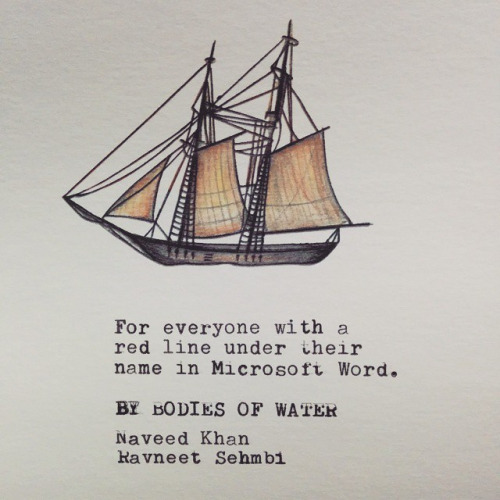 For everyone with a
red line under their
name in Microsoft Word.
BY BODIES OF WATER
Naveed Khan
Ravneet Sehmbi